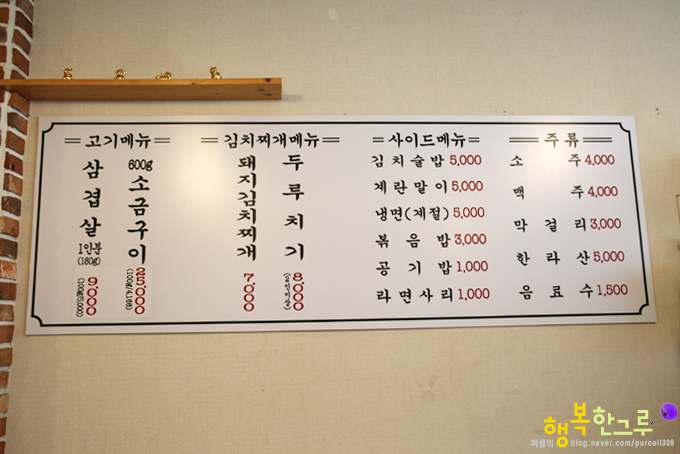 고기메뉴
삼겹살
1인분
(180g)
9,000
(100g/5,000)
600g
소금구이
25,000
(100g/4,166)
김치찌개메뉴
돼지김치찌개
7,000
두루치기
8,000
(2인이상)
사이드메뉴
김치술밥 5,000
계란말이 5,000
냉면(계절) 5,000
볶음밥 3,000
공기밥 1,000
라면사리 1,000
주류
소주 4,000
맥주 4,000
막걸리 3,000
한라산 5,000
음료수 1,500
행복한그루
퍼셀의 blog.naver.com/purcell309